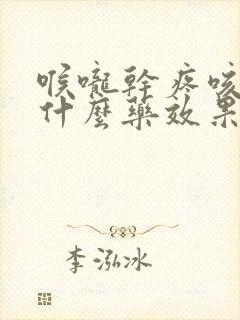 喉嚨幹疼咳
什麼藥效果
李泓冰